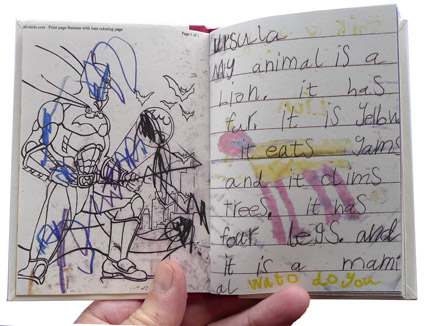 Print page Batman with bats coloring page
Page 1 of 1
ursula
My animal is a
Lion. it has
fur. it is yellow
it eats yams
and it clims
trees. it has
four legs. and
it is a mami
al wato do you